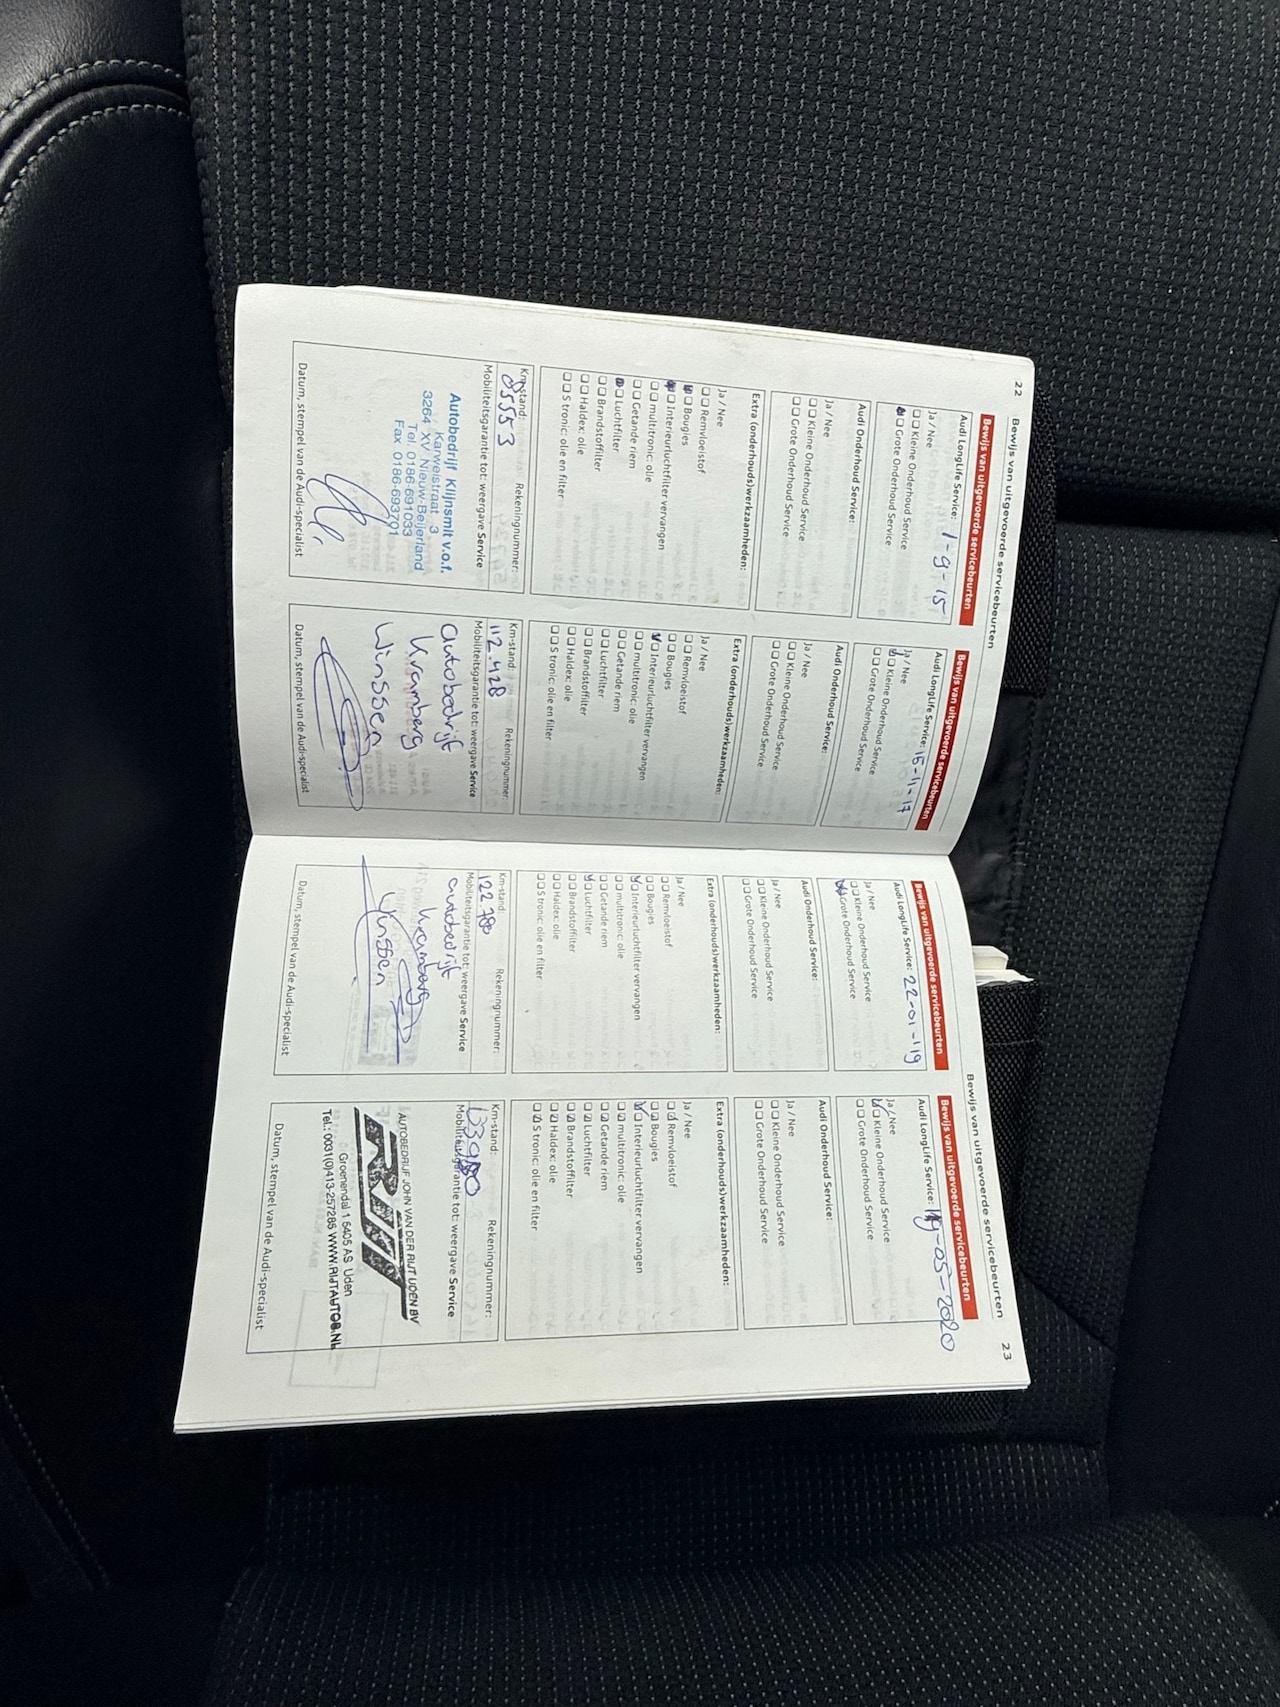 22
Bewijs van uitgevoerde servicebeurten
Bewijs van uitgevoerde servicebeurten
Audi LongLife Service: 1-9-15
Ja / Nee
Kleine Onderhoud Service
Grote Onderhoud Service
Audi Onderhoud Service:
Ja / Nee
Kleine Onderhoud Service
Grote Onderhoud Service
Extra (onderhouds)werkzaamheden:
Ja / Nee
Remvloeistof
Bougies
Interieurluchtfilter vervangen
multitronic: olie
Getande riem
Luchtfilter
Brandstoffilter
Haldex: olie
S tronic: olie en filter
Km-stand: Rekeningnummer:
85553
Mobiliteitsgarantie tot: weergave Service
Autobedrijf Klijnsmit v.o.f.
Karweistraat 3
3264 XV Nieuw-Beijerland
Tel. 0186-691033
Fax 0186-693701
Datum, stempel van de Audi-specialist
Bewijs van uitgevoerde servicebeurten
Audi LongLife Service: 15-11-17
Ja / Nee
Kleine Onderhoud Service
Grote Onderhoud Service
Audi Onderhoud Service:
Ja / Nee
Kleine Onderhoud Service
Grote Onderhoud Service
Extra (onderhouds)werkzaamheden:
Ja / Nee
Remvloeistof
Bougies
Interieurluchtfilter vervangen
multitronic: olie
Getande riem
Luchtfilter
Brandstoffilter
Haldex: olie
S tronic: olie en filter
Km-stand: Rekeningnummer:
112.428
Mobiliteitsgarantie tot: weergave Service
autobedrijf
Kramberg
Winssen
Datum, stempel van de Audi-specialist
Bewijs van uitgevoerde servicebeurten
23
Bewijs van uitgevoerde servicebeurten
Audi LongLife Service: 22-01-'19
Ja / Nee
Kleine Onderhoud Service
Grote Onderhoud Service
Audi Onderhoud Service:
Ja / Nee
Kleine Onderhoud Service
Grote Onderhoud Service
Extra (onderhouds)werkzaamheden:
Ja / Nee
Remvloeistof
Bougies
Interieurluchtfilter vervangen
multitronic: olie
Getande riem
Luchtfilter
Brandstoffilter
Haldex: olie
S tronic: olie en filter
Km-stand: Rekeningnummer:
122.788
Mobiliteitsgarantie tot: weergave Service
autobedrijf
Kramberg
Winssen
Datum, stempel van de Audi-specialist
Bewijs van uitgevoerde servicebeurten
Audi LongLife Service: 19-05-2020
Ja / Nee
Kleine Onderhoud Service
Grote Onderhoud Service
Audi Onderhoud Service:
Ja / Nee
Kleine Onderhoud Service
Grote Onderhoud Service
Extra (onderhouds)werkzaamheden:
Ja / Nee
Remvloeistof
Bougies
Interieurluchtfilter vervangen
multitronic: olie
Getande riem
Luchtfilter
Brandstoffilter
Haldex: olie
S tronic: olie en filter
Km-stand: Rekeningnummer:
Mobiliteitsgarantie tot: weergave Service
AUTOBEDRIJF JOHN VAN DER RIJT UDEN BV
RIJT
Groenendal 1 5405 AS Uden
Tel.: 0031(0)413-257285 WWW.RIJTAUTOS.NL
Datum, stempel van de Audi-specialist